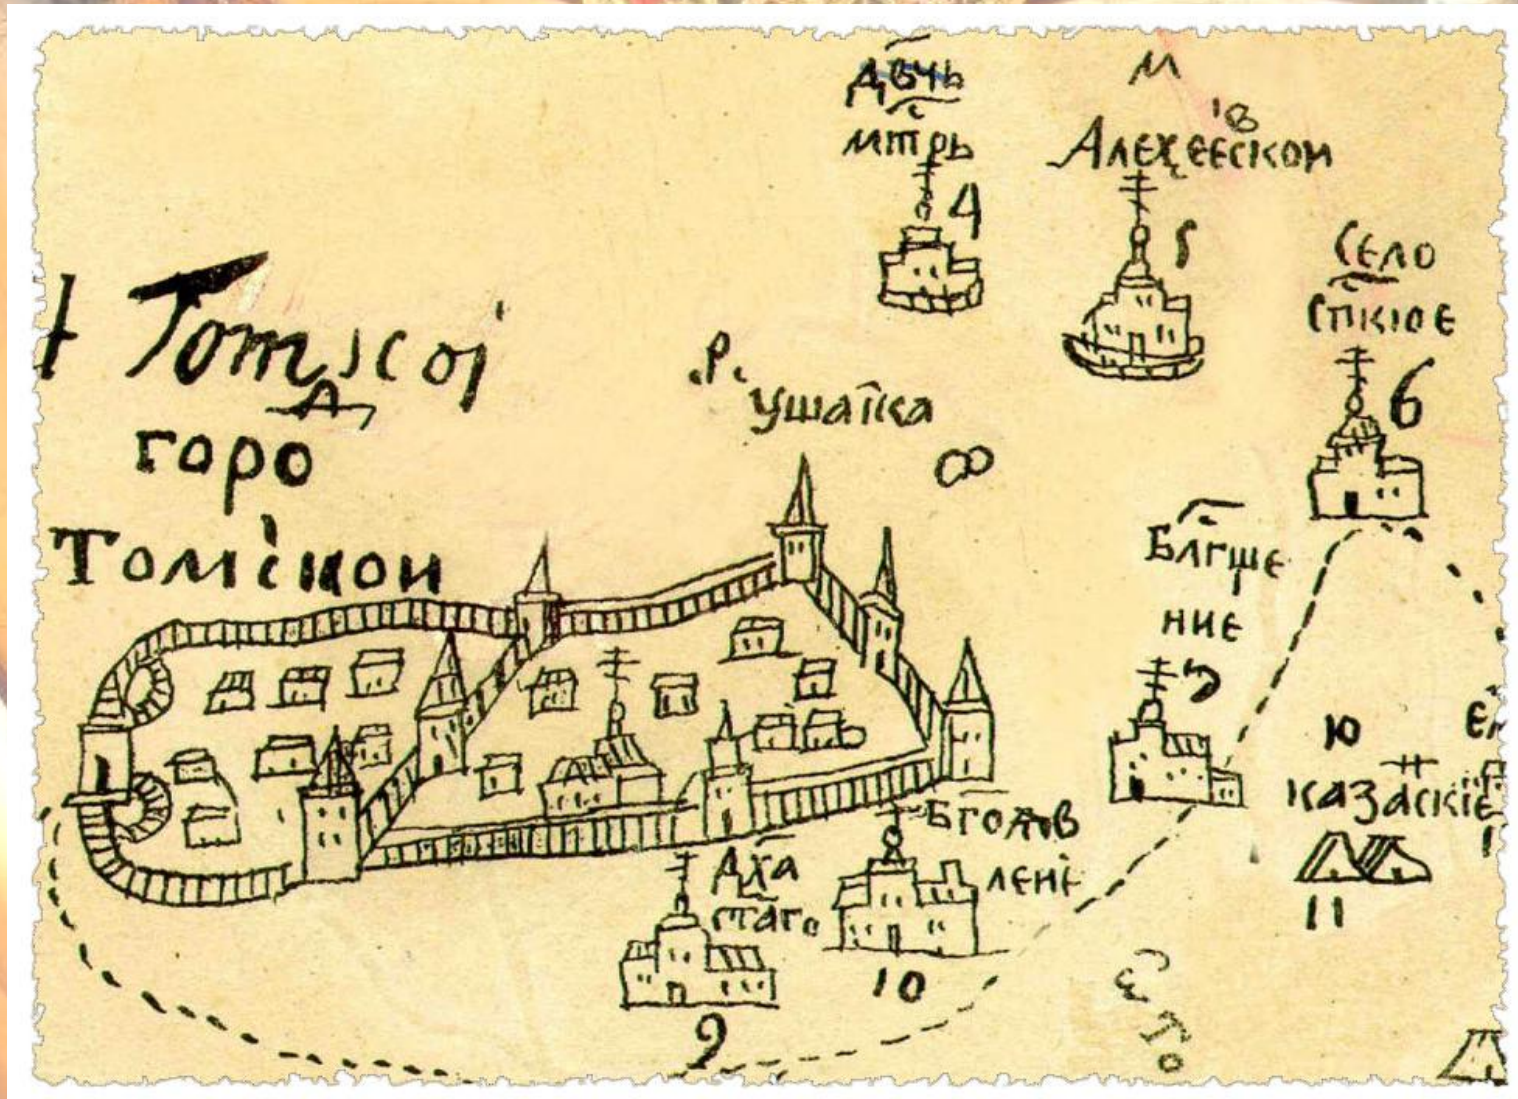 Томскоі
горо д
Томскои
Двчь
мтрь с
4
м
Алеѯеевскои
5
Село
Спкіое
6
.Р. Ушаіка
Блгще
ние
10
казаскіе
11
Бгоявлені
Дха
стаго
9
10